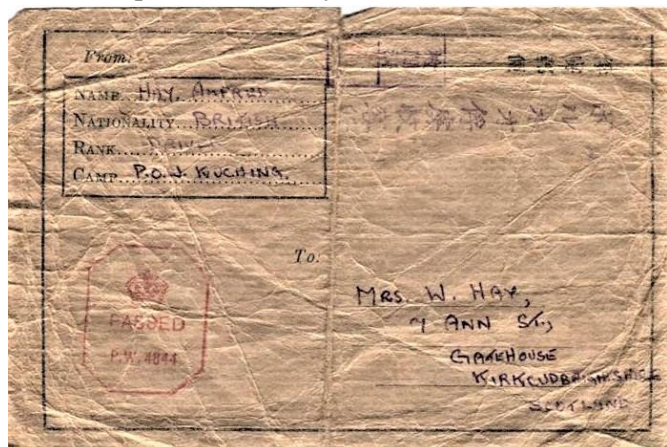 From:
NAME... HAY, ALFRED
NATIONALITY... BRITISH
RANK......
CAMP... P.O.W. KUCHING.
PASSED
P.W. 4844
To:
MRS. W. HAY,
7 ANN ST.,
GATEHOUSE
KIRKCUDBRIGHTSHIRE
SCOTLAND